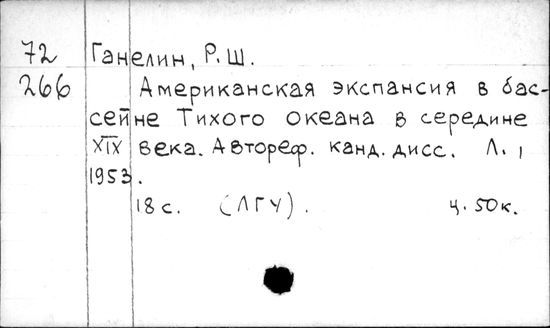 72 Ганелин, Р.Ш.
266 Американская экспансия в бас-
сейне Тихого океана в середине
XIX века. Автореф. канд. дисс. Л.,
1953.
18 с. (ЛГУ). ц. 50к.